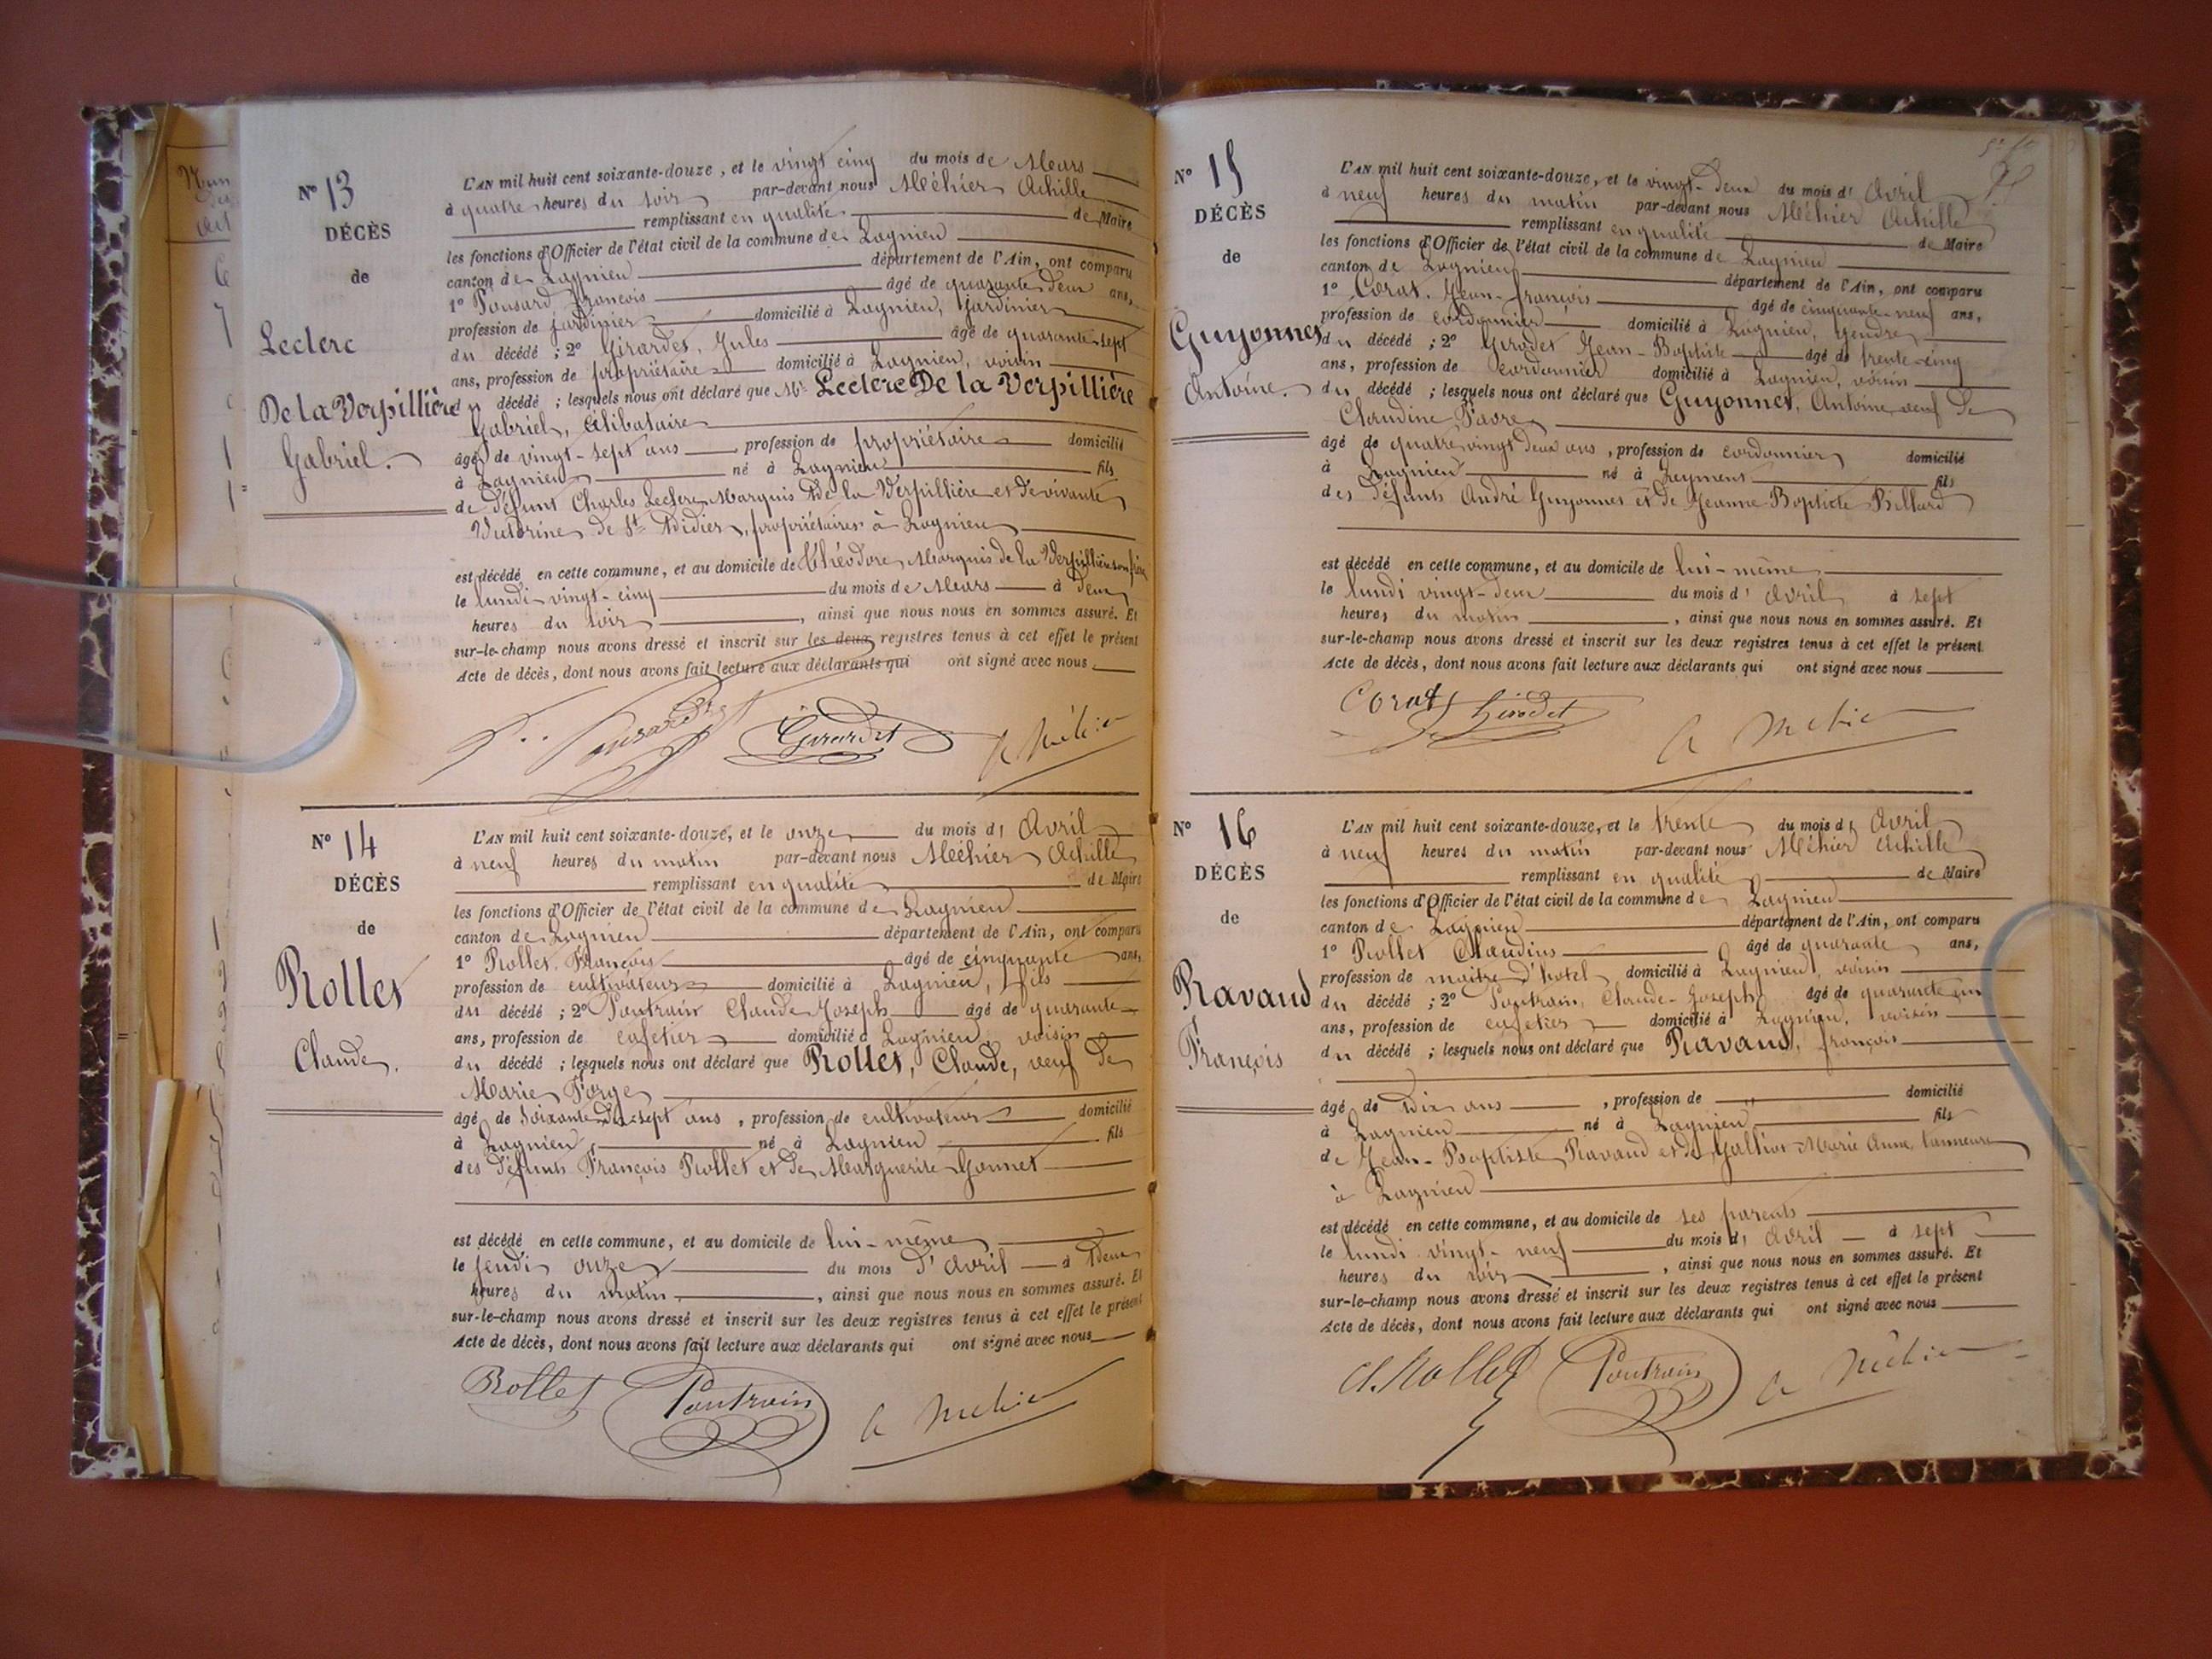 N° 13
DÉCÈS
de
Leclerc
De la Verpillière
Gabriel.
L'AN mil huit cent soixante-douze, et le vingt cinq du mois de Mars
à quatre heures du soir par-devant nous Méhier Achille
remplissant en qualité de Maire
les fonctions d'Officier de l'état civil de la commune de Lagnieu
canton de Lagnieu département de l'Ain, ont comparu
1° Ponsard François âgé de quarante deux ans,
profession de jardinier domicilié à Lagnieu, jardinier
du décédé ; 2° Girardet, Jules âgé de quarante-sept
ans, profession de propriétaire domicilié à Lagnieu, voisin
du décédé ; lesquels nous ont déclaré que Mr Leclerc De la Verpillière
Gabriel, célibataire
âgé de vingt-sept ans, profession de propriétaire domicilié
à Lagnieu né à Lagnieu fils
de défunt Charles Leclerc Marquis De la Verpillière et de vivante
Victorine de St Didier, propriétaires à Lagnieu
est décédé en cette commune, et au domicile de Théodore Marquis de la Verpillière son frère
le lundi vingt-cinq du mois de Mars à deux
heures du soir, ainsi que nous nous en sommes assuré. Et
sur-le-champ nous avons dressé et inscrit sur les deux registres tenus à cet effet le présent
Acte de décès, dont nous avons fait lecture aux déclarants qui ont signé avec nous
Ponsard Girardet A Méhier
N° 14
DÉCÈS
de
Rollet
Claude.
L'AN mil huit cent soixante-douze, et le onze du mois d' Avril
à neuf heures du matin par-devant nous Méhier Achille
remplissant en qualité de Maire
les fonctions d'Officier de l'état civil de la commune de Lagnieu
canton de Lagnieu département de l'Ain, ont comparu
1° Rollet, François âgé de cinquante ans,
profession de cultivateur domicilié à Lagnieu, fils
du décédé ; 2° Poutrain Claude Joseph âgé de quarante
ans, profession de cafetier domicilié à Lagnieu, voisin
du décédé ; lesquels nous ont déclaré que Rollet, Claude, veuf de
Marie Forge
âgé de soixante dix-sept ans, profession de cultivateur domicilié
à Lagnieu, né à Lagnieu fils
des défunts François Rollet et de Marguerite Gonnet
est décédé en cette commune, et au domicile de lui-même
le jeudi onze du mois d'Avril à deux
heures du matin, ainsi que nous nous en sommes assuré. Et
sur-le-champ nous avons dressé et inscrit sur les deux registres tenus à cet effet le présent
Acte de décès, dont nous avons fait lecture aux déclarants qui ont signé avec nous
Rollet Poutrain A Méhier
N° 15
DÉCÈS
de
Guyonnet
Antoine.
L'AN mil huit cent soixante-douze, et le vingt-deux du mois d' Avril
à neuf heures du matin par-devant nous Méhier Achille
remplissant en qualité de Maire
les fonctions d'Officier de l'état civil de la commune de Lagnieu
canton de Lagnieu département de l'Ain, ont comparu
1° Corat, Jean-François âgé de cinquante-neuf ans,
profession de cordonnier domicilié à Lagnieu, gendre
du décédé ; 2° Girodet Jean-Baptiste âgé de trente-cinq
ans, profession de cordonnier domicilié à Lagnieu, voisin
du décédé ; lesquels nous ont déclaré que Guyonnet, Antoine, veuf de
Claudine Favre
âgé de quatre vingt deux ans, profession de cordonnier domicilié
à Lagnieu né à Leyment fils
des défunts André Guyonnet et de Jeanne Baptiste Billard
est décédé en cette commune, et au domicile de lui-même
le lundi vingt-deux du mois d' Avril à sept
heures du matin, ainsi que nous nous en sommes assuré. Et
sur-le-champ nous avons dressé et inscrit sur les deux registres tenus à cet effet le présent
Acte de décès, dont nous avons fait lecture aux déclarants qui ont signé avec nous
Corat Girodet A Méhier
N° 16
DÉCÈS
de
Ravaud
François
L'AN mil huit cent soixante-douze, et le trente du mois d' Avril
à neuf heures du matin par-devant nous Méhier Achille
remplissant en qualité de Maire
les fonctions d'Officier de l'état civil de la commune de Lagnieu
canton de Lagnieu département de l'Ain, ont comparu
1° Rollet Claudius âgé de quarante ans,
profession de maître d'hôtel domicilié à Lagnieu, voisin
du décédé ; 2° Poutrain, Claude-Joseph âgé de quarante un
ans, profession de cafetier domicilié à Lagnieu, voisin
du décédé ; lesquels nous ont déclaré que Ravaud, François
âgé de dix ans, profession de " domicilié
à Lagnieu né à Lagnieu fils
de Jean-Baptiste Ravaud et de Marie Anne, tanneurs
à Lagnieu
est décédé en cette commune, et au domicile de ses parents
le lundi vingt-neuf du mois d' Avril à sept
heures du soir, ainsi que nous nous en sommes assuré. Et
sur-le-champ nous avons dressé et inscrit sur les deux registres tenus à cet effet le présent
Acte de décès, dont nous avons fait lecture aux déclarants qui ont signé avec nous
Cl. Rollet Poutrain A Méhier